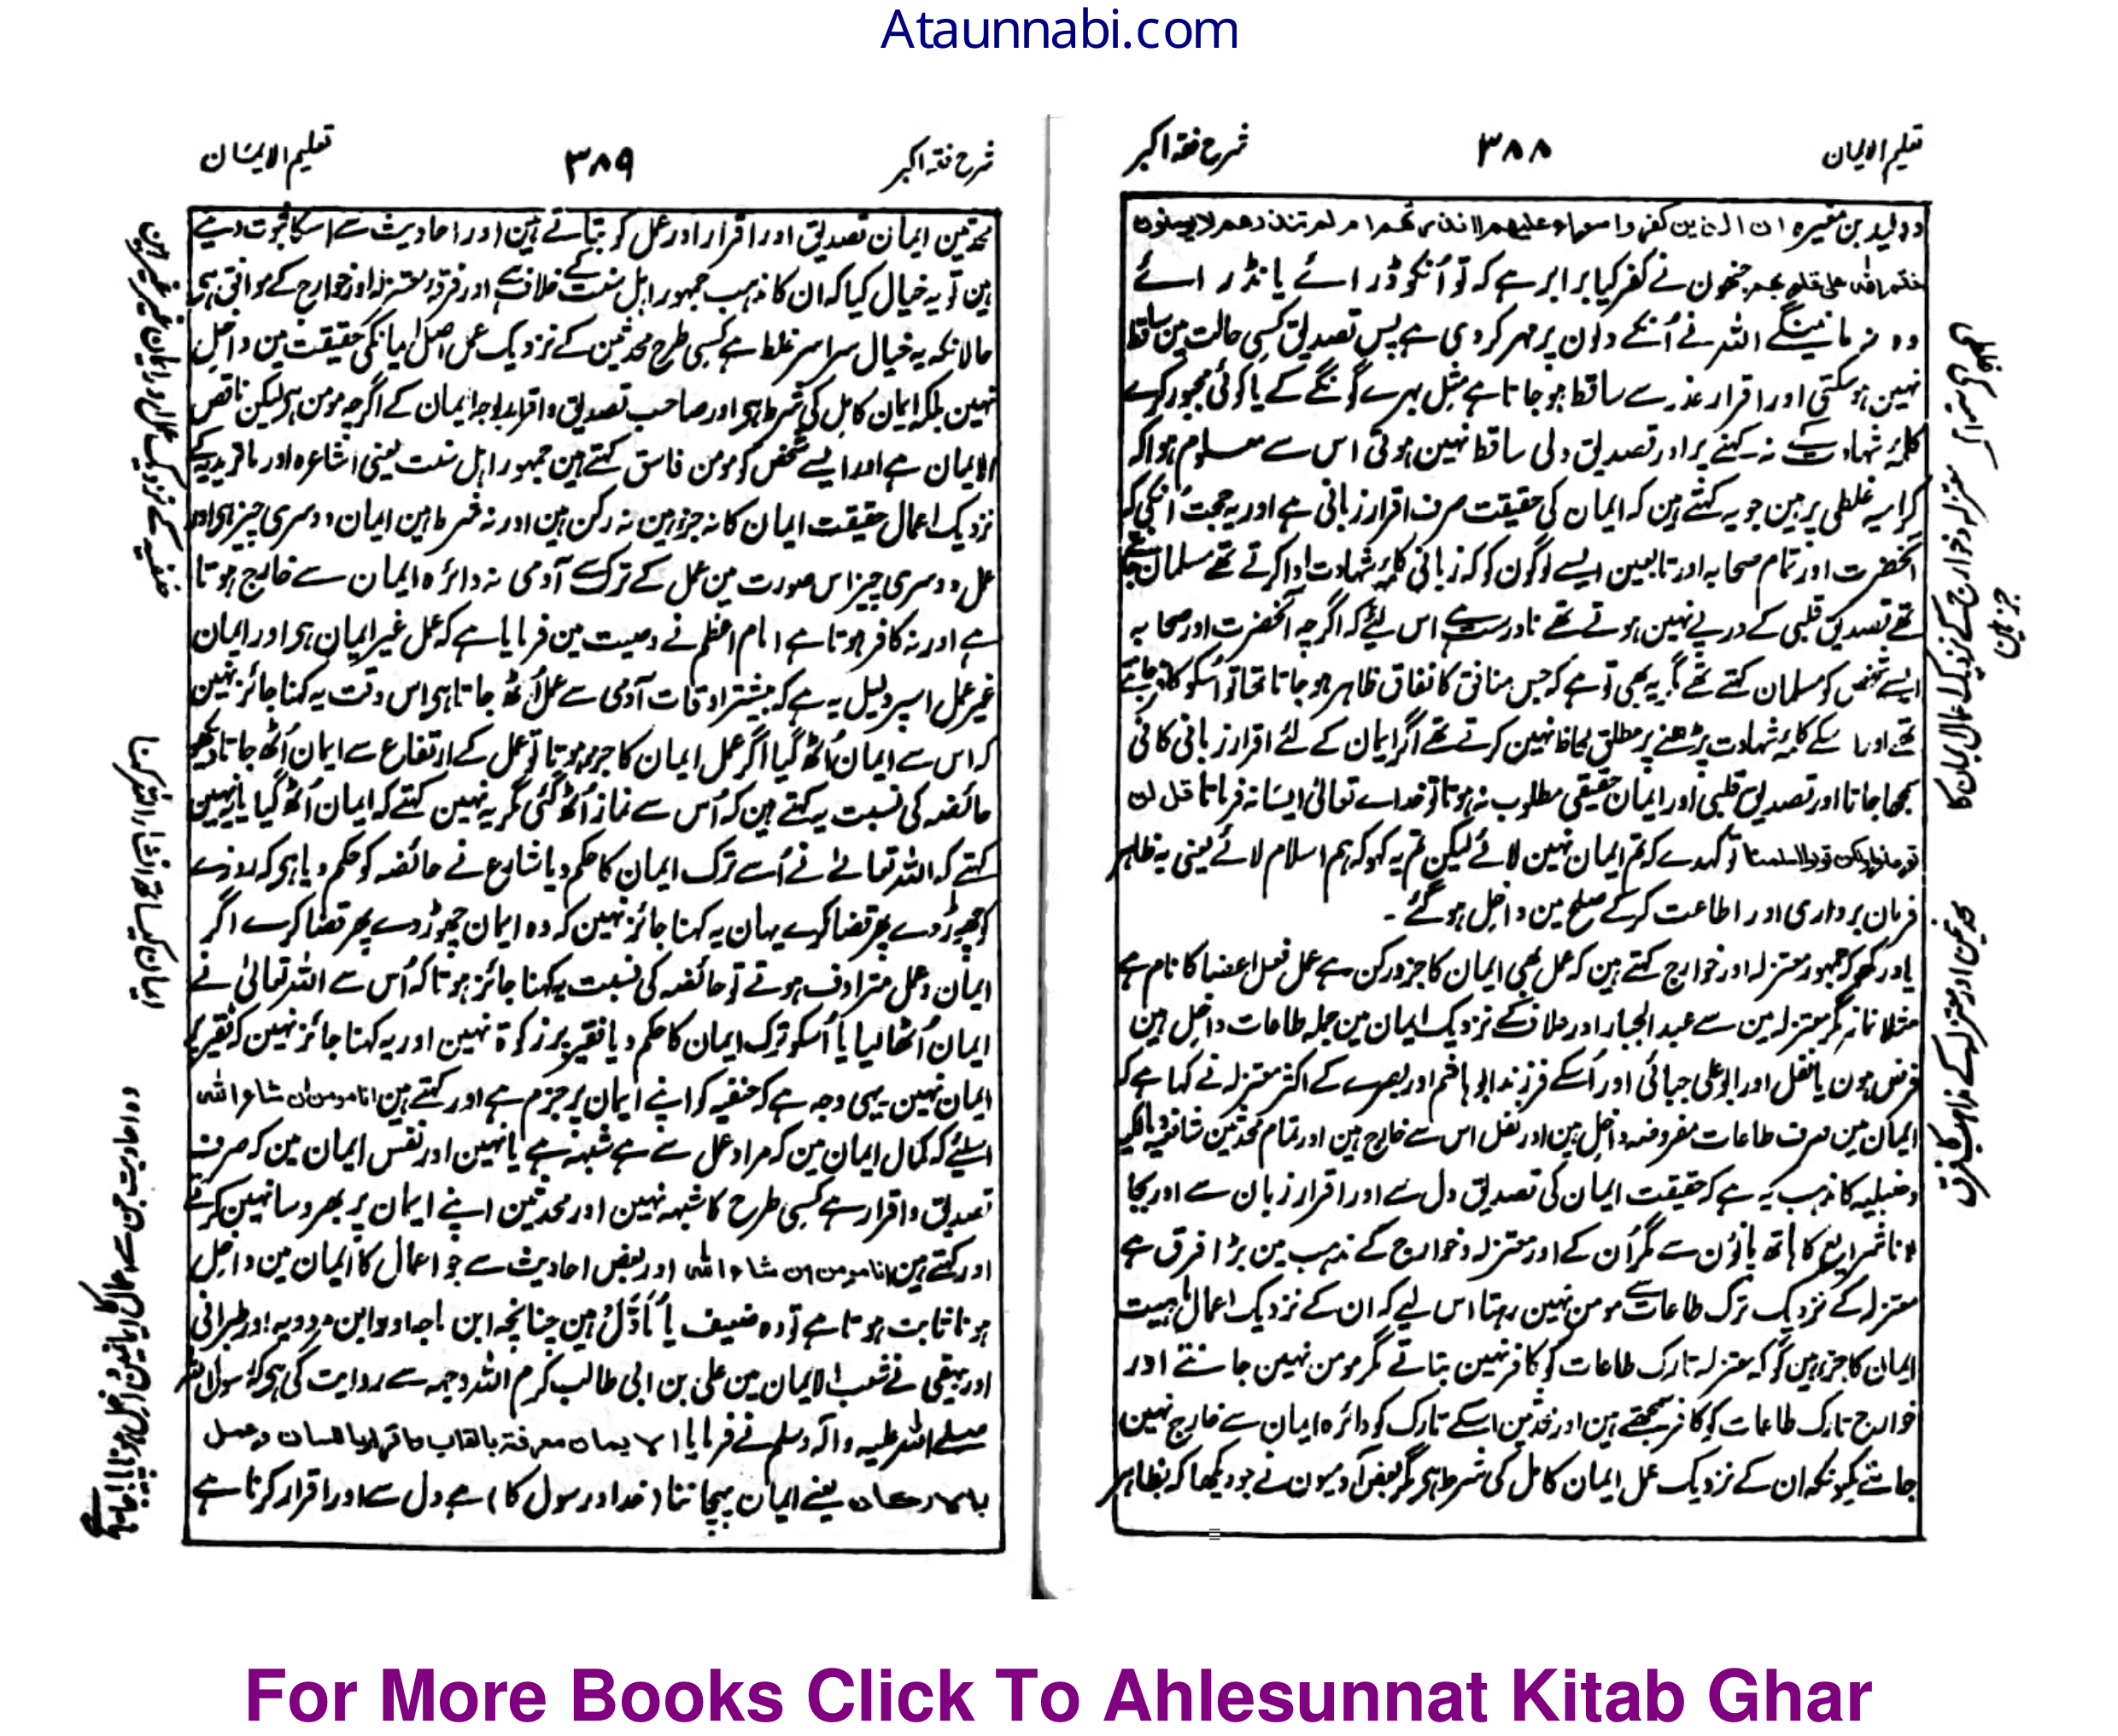 Ataunnabi.com
تعلیم الایمان ۳۸۸ شرح فقہ اکبر
و ولید بن مغیرہ ان الذین کفروا سواء علیهم ءانذرتهم ام لم تنذرهم لا یومنون
ختم اللہ علی قلوبهم جنھون نے کفر کیا برابر ہے کہ تو اُنکو ڈرائے یا نڈر ائے
وہ نہ مانینگے اللہ نے اُنکے دلون پر مہر کر دی ہے پس تصدیق کسی حالت مین ساقط
نہین ہو سکتی اور اقرار عذر سے ساقط ہو جاتا ہے مثل بہرے گونگے کے یا کوئی مجبور کرے
کلمۂ شہادت نہ کہنے پر اور تصدیق دلی ساقط نہین ہوتی اس سے معلوم ہوا کہ
کرامیہ غلطی پر ہین جو یہ کہتے ہین کہ ایمان کی حقیقت صرف اقرار زبانی ہے اور یہ حجت اُنکی کہ
آنحضرت اور تمام صحابہ اور تابعین ایسے لوگون کو کہ زبانی کلمۂ شہادت ادا کرتے تھے مسلمان جانتے
تھے تصدیق قلبی کے درپے نہین ہوتے تھے نادرست ہے اس لئے کہ اگرچہ آنحضرت اور صحابہ
ایسے شخص کو مسلمان کہتے تھے مگر یہ بھی تو ہے کہ جس منافق کا نفاق ظاہر ہو جاتا تھا تو اُسکو کافر جانتے
تھے اور اسکے کلمۂ شہادت پڑھنے پر مطلق لحاظ نہین کرتے تھے اگر ایمان کے لئے اقرار زبانی کافی
سمجھا جاتا اور تصدیق قلبی اور ایمان حقیقی مطلوب نہ ہوتا تو خداے تعالیٰ ایسا نہ فرماتا قل لن
تومنوا ولکن قولوا اسلمنا تو کہدے کہ تم ایمان نہین لائے لیکن تم یہ کہو کہ ہم اسلام لائے یعنی یہ ظاہر
فرمان برداری اور اطاعت کرکے صلح مین داخل ہو گئے ۔
یاد رکھو کہ جمہور معتزلہ اور خوارج کہتے ہین کہ عمل بھی ایمان کا جزو رکن ہے عمل فعل اعضا کا نام ہے
مثلاً نماز مگر معتزلہ مین سے عبد الجبار اور علاف کے نزدیک ایمان مین جملہ طاعات داخل ہین
فرض ہون یا نفل اور ابو علی جبائی اور اُسکے فرزند ابو ہاشم اور بصرے کے اکثر معتزلہ نے کہا ہے کہ
ایمان مین صرف طاعات مفروضہ داخل ہین اور نفل اس سے خارج ہین اور تمام محدثین شافعیہ مالکیہ
و حنبلیہ کا مذہب یہ ہے کہ حقیقت ایمان کی تصدیق دل سے اور اقرار زبان سے اور بجا
لانا شرایع کا ہاتھ پاؤن سے مگر اُن کے اور معتزلہ و خوارج کے مذہب مین بڑا فرق ہے
معتزلہ کے نزدیک ترک طاعات سے مومن نہین رہتا اس لیے کہ ان کے نزدیک اعمال ماہیت
ایمان کا جز ہین گو کہ معتزلہ تارک طاعات کو کافر نہین بتاتے مگر مومن نہین جانتے اور
خوارج تارک طاعات کو کافر سمجھتے ہین اور محدثین اسکے تارک کو دائرہ ایمان سے خارج نہین
جانتے کیونکہ ان کے نزدیک عمل ایمان کامل کی شرط ہے مگر بعض آدمیون نے جو دیکھا کہ بظاہر
معتزلہ و خوارج کے نزدیک اعمال ایمان کا
جز ہین
محدثین اور معتزلہ کے مذاہب کا فرق
شرح فقہ اکبر ۳۸۹ تعلیم الایمان
محدثین ایمان تصدیق اور اقرار اور عمل کو بتاتے ہین اور احادیث سے اسکا ثبوت دیتے
ہین تو یہ خیال کیا کہ ان کا مذہب جمہور اہل سنت کے خلاف ہے اور فرقہ معتزلہ اور خوارج کے موافق ہے
حالانکہ یہ خیال سراسر غلط ہے کسی طرح محدثین کے نزدیک عمل اصل ایمان کی حقیقت مین داخل
نہین بلکہ ایمان کامل کی شرط ہے اور صاحب تصدیق و اقرار بلا عمل ایمان کے اگرچہ مومن ہے لیکن ناقص
الایمان ہے اور ایسے شخص کو مومن فاسق کہتے ہین جمہور اہل سنت یعنی اشاعرہ اور ماتریدیہ کے
نزدیک اعمال حقیقت ایمان کا نہ جز ہین نہ رکن ہین اور نہ شرط ہین ایمان دوسری چیز ہے اور
عمل دوسری چیز اس صورت مین عمل کے ترک سے آدمی نہ دائرہ ایمان سے خارج ہوتا
ہے اور نہ کافر ہوتا ہے امام اعظم نے وصیت مین فرمایا ہے کہ عمل غیر ایمان ہے اور ایمان
غیر عمل اسپر دلیل یہ ہے کہ بیشتر اوقات آدمی سے عمل اُٹھ جاتا ہے اس وقت یہ کہنا جائز نہین
کہ اس سے ایمان اُٹھ گیا اگر عمل ایمان کا جز ہوتا تو عمل کے ارتفاع سے ایمان اُٹھ جاتا دیکھو
حائضہ کی نسبت یہ کہتے ہین کہ اُس سے نماز اُٹھ گئی مگر یہ نہین کہتے کہ ایمان اُٹھ گیا یا یہ نہین
کہتے کہ اللہ تعالیٰ نے اُسے ترک ایمان کا حکم دیا شارع نے حائضہ کو حکم دیا ہے کہ روزے
کو چھوڑ دے پھر قضا کرے یہان یہ کہنا جائز نہین کہ وہ ایمان چھوڑ دے پھر قضا کرے اگر
ایمان و عمل مترادف ہوتے تو حائضہ کی نسبت یہ کہنا جائز ہوتا کہ اُس سے اللہ تعالیٰ نے
ایمان اُٹھا لیا یا اُسکو ترک ایمان کا حکم دیا فقیر پر زکوۃ نہین اور یہ کہنا جائز نہین کہ فقیر پر
ایمان نہین یہی وجہ ہے کہ حنفیہ کو اپنے ایمان پر جزم ہے اور کہتے ہین انا مومن ان شاء اللہ
اسلئے کہ کمال ایمان مین کہ مراد عمل سے ہے شبہہ ہے یا نہین اور نفس ایمان مین کہ صرف
تصدیق و اقرار ہے کسی طرح کا شبہہ نہین اور محدثین اپنے ایمان پر بھروسا نہین کرتے
اور کہتے ہین انا مومن ان شاء اللہ اور بعض احادیث سے جو اعمال کا ایمان مین داخل
ہونا ثابت ہوتا ہے تو وہ ضعیف یا مأوّل ہین چنانچہ ابن ماجہ اور ابن مردویہ اور طبرانی
اور بیہقی نے شعب الایمان مین علی بن ابی طالب کرم اللہ وجہہ سے روایت کی ہے کہ رسول اللہ
صلے اللہ علیہ و آلہ وسلم نے فرمایا الایمان معرفۃ بالقلب و اقرار باللسان و عمل
بالارکان یعنے ایمان پہچاننا (خدا اور رسول کا) ہے دل سے اور اقرار کرنا ہے
For More Books Click To Ahlesunnat Kitab Ghar